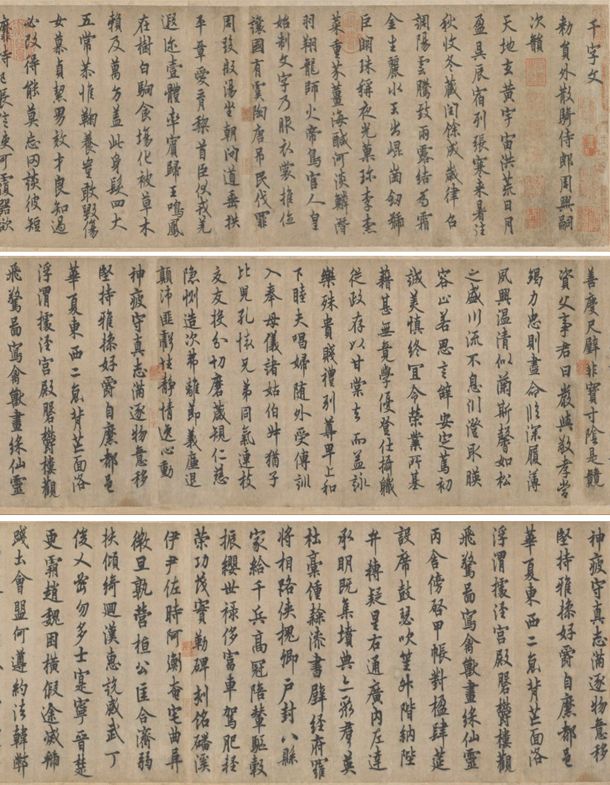 千字文
勅員外散騎侍郎周興嗣
次韻
天地玄黃宇宙洪荒日月
盈昃辰宿列張寒来暑往
秋收冬藏閏餘成歲律召
調陽雲騰致雨露結為霜
金生麗水玉出崐崗劒號
巨闕珠稱夜光菓珎李柰
菜重芥薑海醎河淡鱗潛
羽翔龍師火帝鳥官人皇
始制文字乃服衣裳推位
讓國有虞陶唐弔民伐罪
周發殷湯坐朝問道垂拱
平章愛育黎首臣伏戎羌
遐迩壹體率賓歸王鳴鳳
在樹白駒食塲化被草木
賴及萬方盖此身髮四大
五常恭惟鞠養豈敢毀傷
女慕貞潔男效才良知過
必改得能莫忘罔談彼短
靡恃己長信使可覆器欲
善慶尺璧非寶寸陰是競
資父事君曰嚴與敬孝當
竭力忠則盡命臨深履薄
夙興溫凊似蘭斯馨如松
之盛川流不息淵澄取暎
容止若思言辭安定篤初
誠美慎終宜令榮業所基
藉甚無竟學優登仕攝職
從政存以甘棠去而益詠
樂殊貴賤禮別尊卑上和
下睦夫唱婦隨外受傅訓
入奉母儀諸姑伯叔猶子
比兒孔懷兄弟同氣連枝
交友投分切磨箴規仁慈
隱惻造次弗離節義廉退
顛沛匪虧性靜情逸心動
神疲守真志滿逐物意移
堅持雅操好爵自縻都邑
華夏東西二京背芒面洛
浮渭據涇宮殿磐鬱樓觀
飛驚啚寫禽獸畫綵仙靈
神疲守真志滿逐物意移
堅持雅操好爵自縻都邑
華夏東西二京背芒面洛
浮渭據涇宮殿磐鬱樓觀
飛驚啚寫禽獸畫綵仙靈
丙舍傍啓甲帳對楹肆莚
設席鼓瑟吹笙升階納陛
弁轉疑星右通廣內左達
承明既集墳典亦聚羣英
杜稾鍾隸漆書壁經府羅
將相路俠槐卿戶封八縣
家給千兵高冠陪輦驅轂
振纓世祿侈富車駕肥輕
策功茂實勒碑刻銘磻溪
伊尹佐時阿衡奄宅曲阜
微旦孰營桓公匡合濟弱
扶傾綺迴漢惠說感武丁
俊乂密勿多士寔寧晉楚
更霸趙魏困橫假途滅虢
踐土會盟何遵約法韓弊